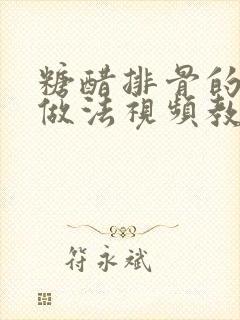 糖醋排骨的
做法視頻教
符永斌